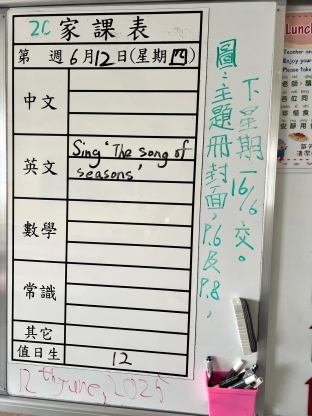 2C 家課表
第 週 6月12日(星期四)
中文
英文
Sing 'The song of
seasons'
數學
常識
其它
值日生
12
12th June, 2025
圖:主題冊封面,P.6及P.8,
下星期一16/6交。
Lunch